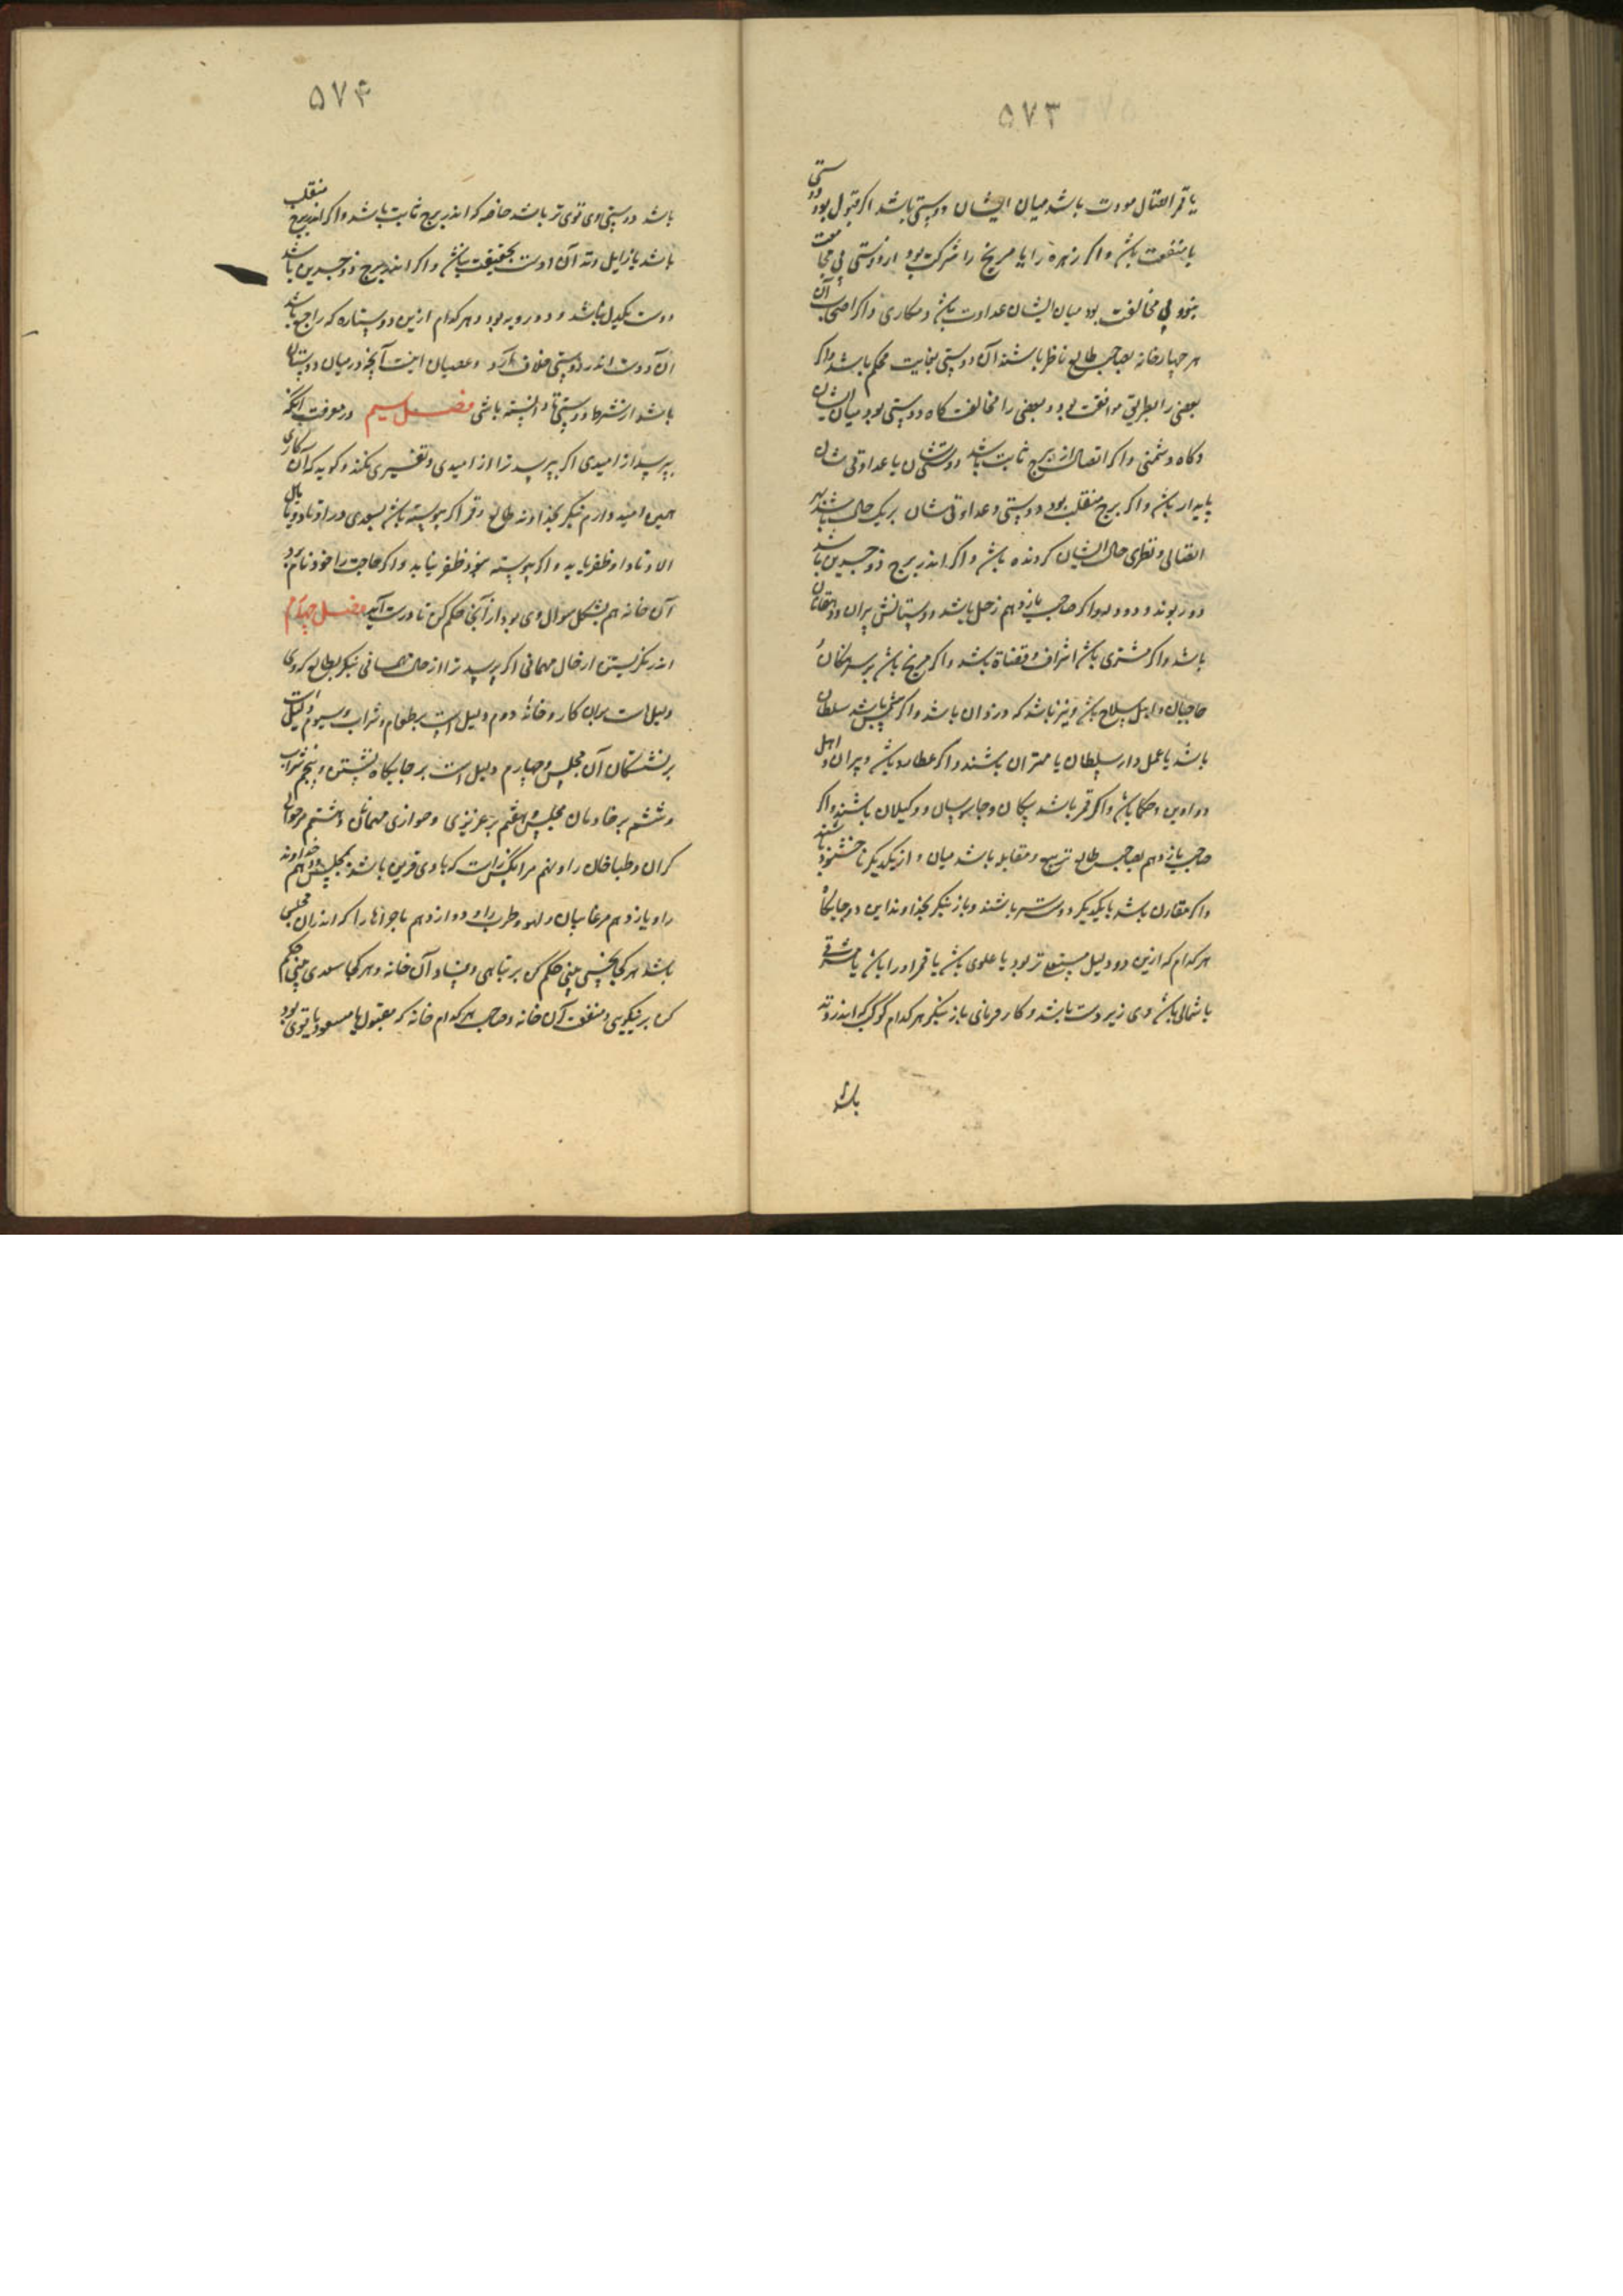 ۵۷۳
یا قمر اتصال مودت باشد میان ایشان دوستی باشد اگر قبول بود دوستی
با منفعت باشد و اگر زهره را با مریخ را شرکت بود از دوستی بی
بود بی مخالفت بود میان ایشان عداوت باشد و مکاری و اگر اصحاب آن
هر چهار خانه بصاحب طالع ناظر باشند آن دوستی بغایت محکم باشد و اگر
بعضی را بطریق موافقت بود و بعضی را مخالفت گاه دوستی بود میان ایشان
و گاه دشمنی و اگر اتصال از برج ثابت باشد دوستیشان یا عداوتی شان
پایدار باشد و اگر برج منقلب بود دوستی و عداوتی شان بر یک حال نباشد بهر
اتصالی و نظری حال ایشان گردنده باشد و اگر اندر برج ذو جسدین باشد
دو روبوند و دو دل و اگر صاحب یازدهم زحل باشد دوستانش پیران و دهقانان
باشد و اگر مشتری باشد اشراف و قضاة باشد و اگر مریخ باشد سرهنگان
حاجبان و اهل سلاح باشد و نیز باشد که دزدان باشد و اگر شمس باشد سلطان
باشد یا عمل دار سلطان یا مهتران باشند و اگر عطارد باشد دبیران و اهل
دواوین و حکما باشد و اگر قمر باشد پیکان و جاسوسان و وکیلان باشند و اگر
صاحب یازدهم بصاحب طالع تربیع و مقابله باشد میان و از یکدیگر ناخشنود باشند
و اگر مقارن باشد با یکدیگر دوستتر باشند و باز بنگر بخداوند این دو جایگاه
هر کدام که ازین دو دلیل مستعلی تر بود یا علوی باشد یا قمر او را باشد یا مشرقی
یا شمالی باشد وی زبردست باشد و کار فرمای باز بنگر هر کدام کوکب که اندر وتد
باشد
۵۷۴
باشد دوستی وی قوی تر باشد خاصه که اندر برج ثابت باشد و اگر اندر برج منقلب
باشد یا زایل وتد آن دوست بحقیقت نباشد و اگر اندر برج ذو جسدین باشد
دوست یکدل نباشد و دو رویه بود و هر کدام ازین دو ستاره که راجع باشد
آن دوست اندر دوستی خلاف آرد و عصیان اینست آنچه در میان دوستان
باشد از شرط دوستی تا دانسته باشی فصل سیم در معرفت آنکه
بپرسد از امیدی اگر بپرسد ترا از امیدی و تفسیری نکند و گوید که آن کاری
همین امید دارم بنگر بخداوند طالع و قمر اگر پیوسته باشد بسعدی در اوتاد و مایل
الاوتاد او ظفر یابد و اگر پیوسته بود ظفر نیابد و اگر حاجت را خود نام برد
آن خانه هم بشکل سوال وی بود از آنجا حکم کن تا درست آید فصل چهارم
اندر نگریستن از حال مهمانی اگر بپرسد ترا از حال مهمانی بنگر بطالع که وی
دلیل است بر آن کار و خانه دوم دلیل است بر طعام و شراب و سیوم دلیل است
بر نشستگان آن مجلس و چهارم دلیل است بر جایگاه نشستن و پنجم شراب
و ششم بر خادمان مجلس و هفتم بر عزیزی و خواری مهمانان و هشتم مر
گران و طباخان را و نهم مر آنکس راست که با وی قرین باشد بمجلس و دهم خداوند
را و یازدهم مر و لهو و طرب را و دوازدهم ماجراها را که اندران مجلس
باشد هر کجا نحسی بینی حکم کن بر تباهی و فساد آن خانه و هر کجا سعدی بینی حکم
کن بر نیکویی و منفعت آن خانه و صاحب هر کدام خانه که مقبول یا مسعود یا قوی بود